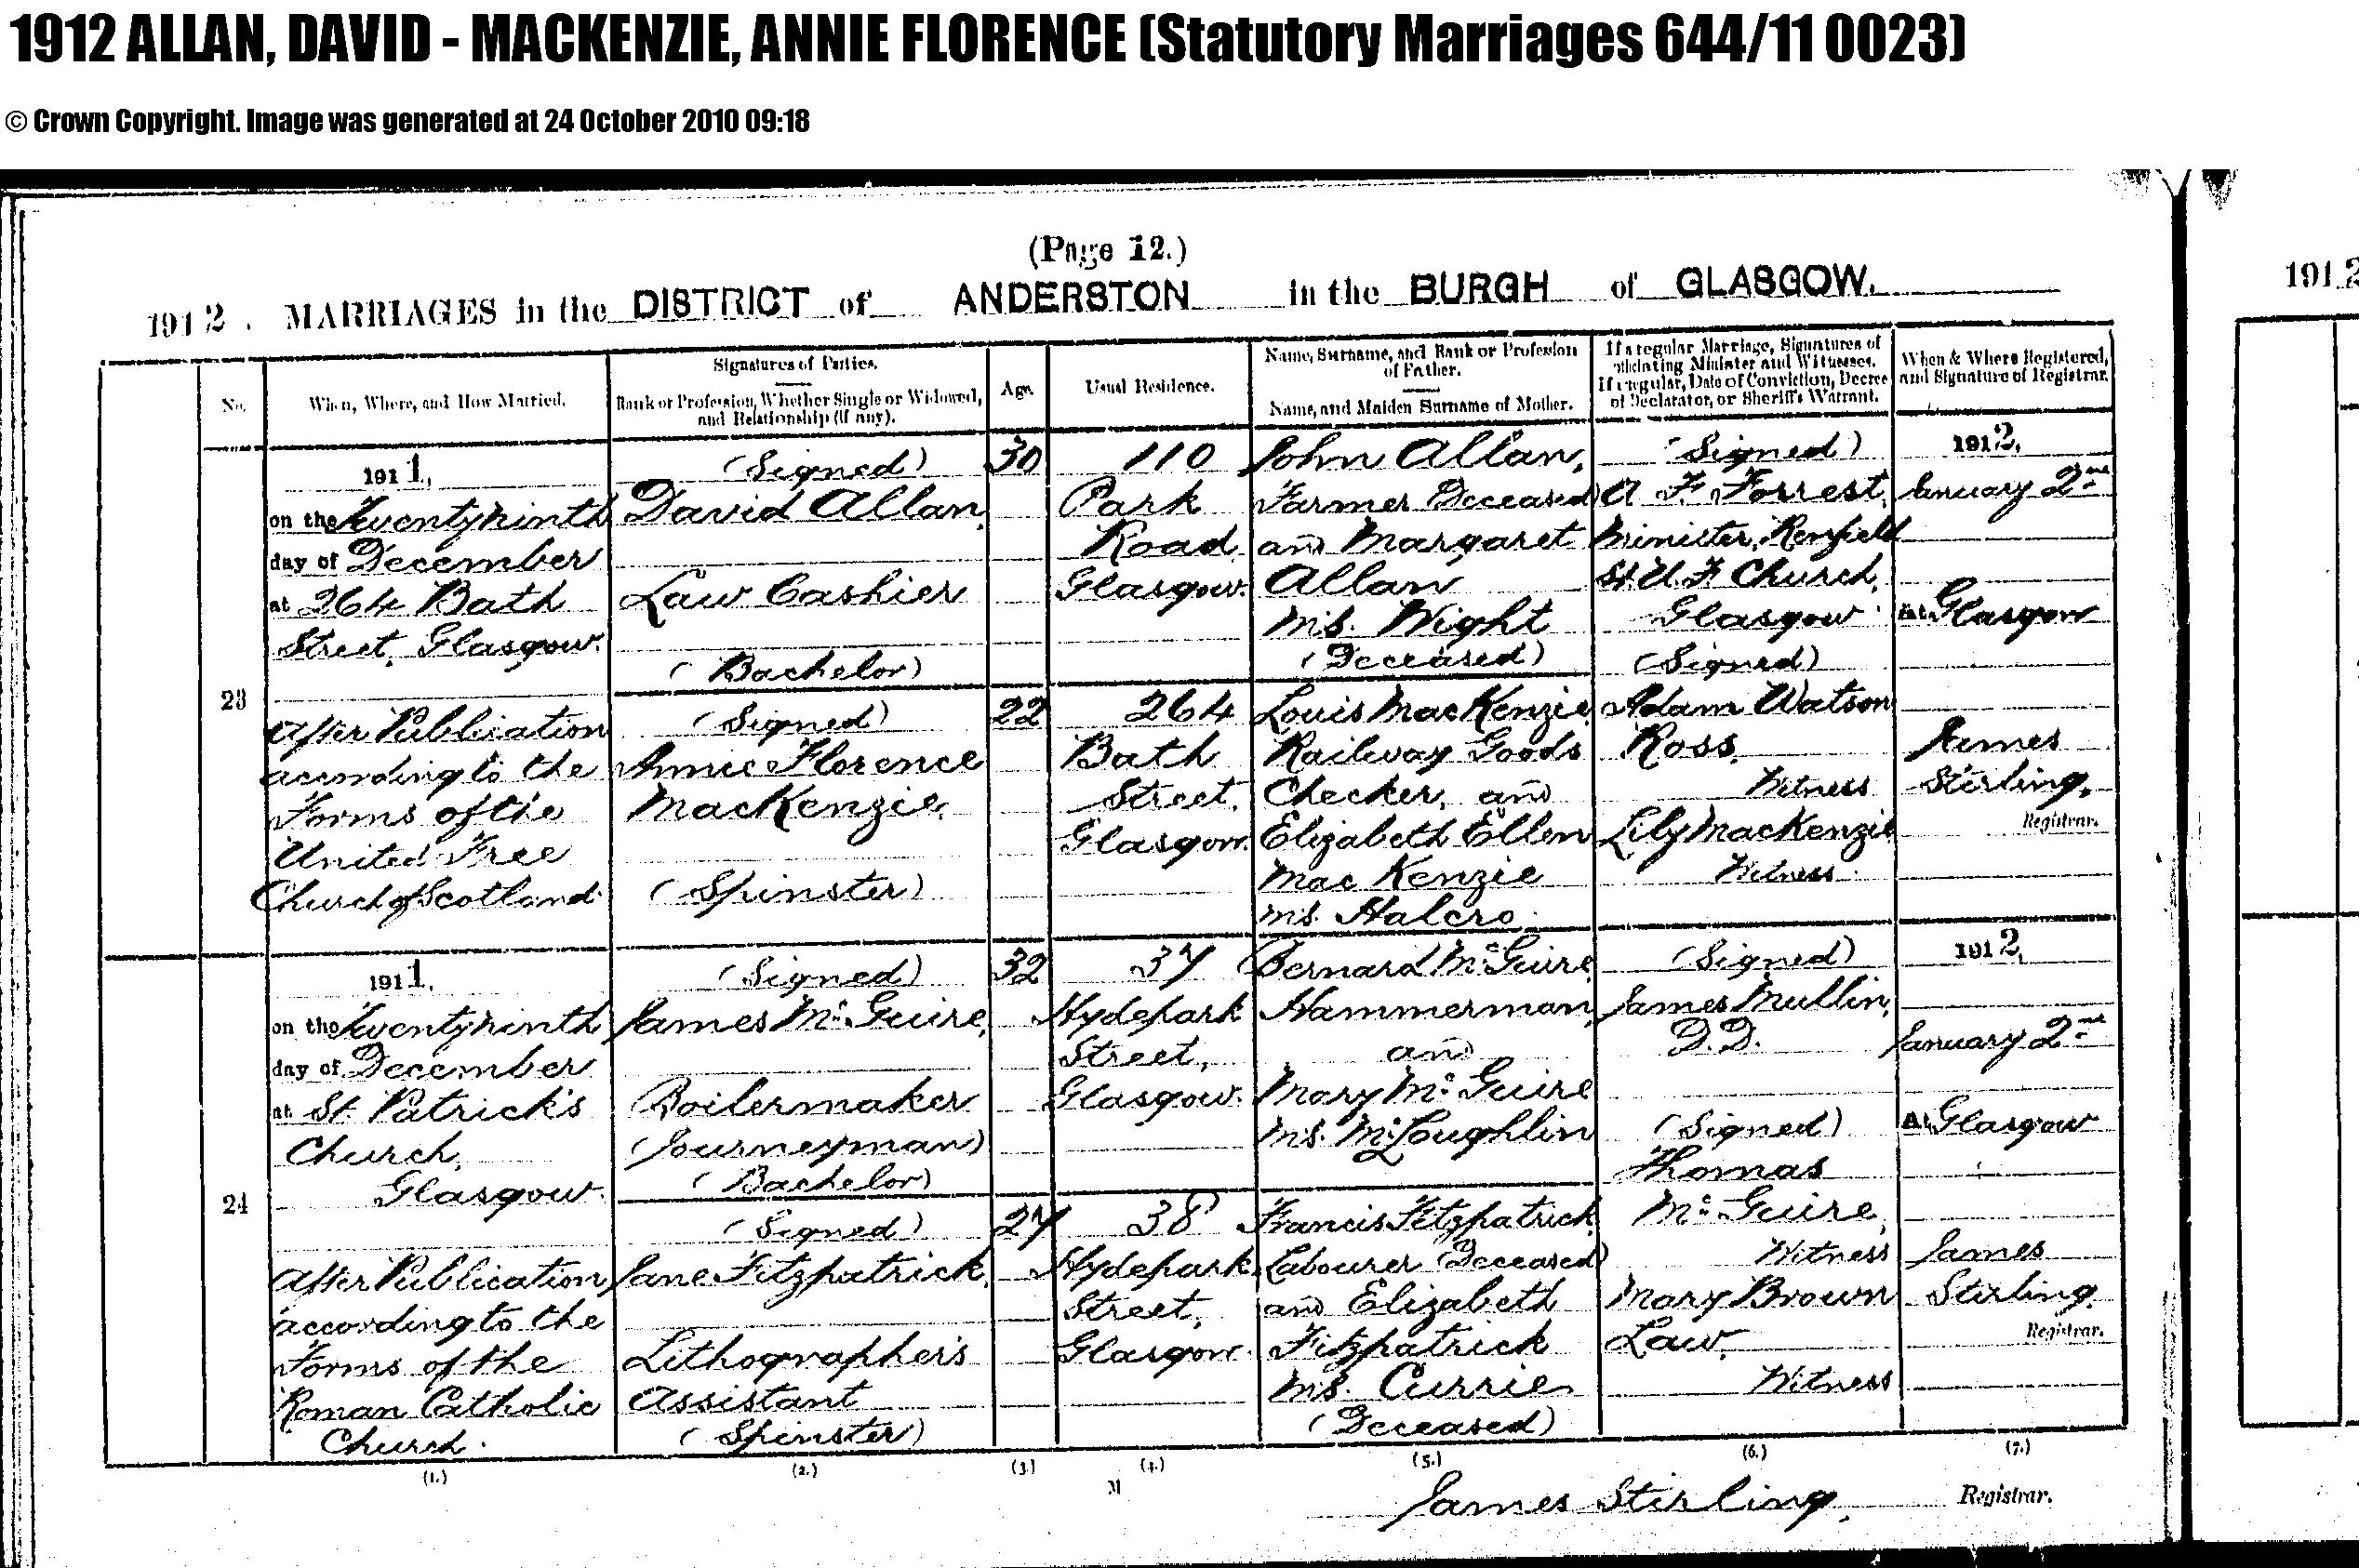 1912 ALLAN, DAVID - MACKENZIE, ANNIE FLORENCE (Statutory Marriages 644/11 0023)
© Crown Copyright. Image was generated at 24 October 2010 09:18
(Page 12.)
1912. MARRIAGES in the DISTRICT of ANDERSTON in the BURGH of GLASGOW.
1912
No.
When, Where, and How Married.
Signatures of Parties.
Rank or Profession, Whether Single or Widowed,
and Relationship (if any).
Age.
Usual Residence.
Name, Surname, and Rank or Profession
of Father.
Name, and Maiden Surname of Mother.
If a regular Marriage, Signatures of
officiating Minister and Witnesses.
If irregular, Date of Conviction, Decree
of Declarator, or Sheriff's Warrant.
When & Where Registered,
and Signature of Registrar.
23
1911,
on the Twentyninth
day of December
at 264 Bath
Street, Glasgow.
After Publication
according to the
Forms of the
United Free
Church of Scotland.
(Signed)
David Allan,
Law Cashier
(Bachelor)
(Signed)
Annie Florence
MacKenzie,
(Spinster)
30
22
110
Park
Road,
Glasgow.
264
Bath
Street,
Glasgow.
John Allan,
Farmer (Deceased)
and Margaret
Allan
m.s. Wight
(Deceased)
Louis MacKenzie,
Railway Goods
Checker, and
Elizabeth Ellen
MacKenzie
m.s. Halcro.
(Signed)
A. F. Forrest,
Minister, Renfield
St. U. F. Church,
Glasgow.
(Signed)
Adam Watson
Ross,
Witness
Lily MacKenzie
Witness.
1912,
January 2nd
At Glasgow
James
Stirling,
Registrar.
24
1911,
on the Twentyninth
day of December
at St. Patrick's
Church,
Glasgow.
After Publication
according to the
Forms of the
Roman Catholic
Church.
(Signed)
James McGuire,
Boilermaker
(Journeyman)
(Bachelor)
(Signed)
Jane Fitzpatrick,
Lithographer's
Assistant
(Spinster)
32
27
37
Hydepark
Street,
Glasgow.
38
Hydepark
Street,
Glasgow.
Bernard McGuire,
Hammerman,
and
Mary McGuire
m.s. McLoughlin
Francis Fitzpatrick,
Labourer (Deceased)
and Elizabeth
Fitzpatrick
m.s. Currie
(Deceased)
(Signed)
James Mullin,
D.D.
(Signed)
Thomas
McGuire,
Witness
Mary Brown
Law,
Witness
1912,
January 2nd
At Glasgow
James
Stirling.
Registrar.
(1.) (2.) (3.) (4.) (5.) (6.) (7.)
M
James Stirling, Registrar.